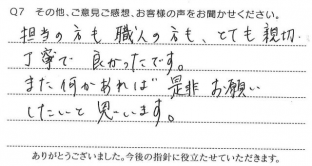 Q7 その他、ご意見ご感想、お客様の声をお聞かせください。
担当の方も職人の方も、とても親切、
丁寧で良かったです。
また何かあれば是非お願い
したいと思います。
ありがとうございました。今後の指針に役立たせていただきます。